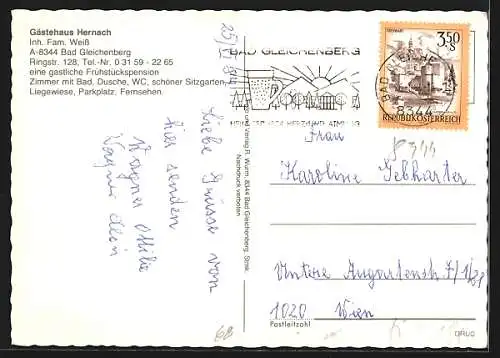 Gästehaus Hernach
Inh. Fam. Weiß
A-8344 Bad Gleichenberg
Ringstr. 128, Tel.-Nr. 0 31 59 - 22 65
eine gastliche Frühstückspension
Zimmer mit Bad, Dusche, WC, schöner Sitzgarten,
Liegewiese, Parkplatz, Fernsehen.
Liebe Grüsse von
hier senden
Wagner Ottilie
Wagner
und Verlag R. Wurm, 8344 Bad Gleichenberg, Stmk.
Nachdruck verboten
BAD GLEICHENBERG
HERZ UND ATMUNG
BAD
8344
3.50
S
REPUBLIK ÖSTERREICH
8344
Frau
Karoline Gebharter
Untere Augartenstr. 7/1/
1020 Wien
Postleitzahl
68